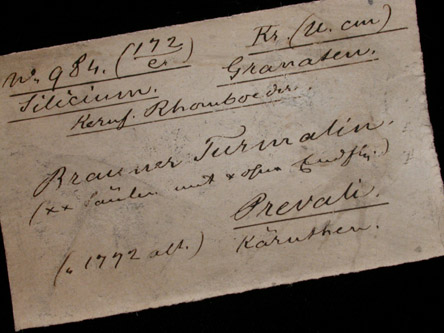 No. 984. (172/er.) Kr. (U. cm)
Silicium. Granaten.
Kernf. Rhomboeder.
Brauner Turmalin.
(xx Säulen mit x ohne Endfl.)
Prevali.
(" 1772 alt.) Kärnthen.